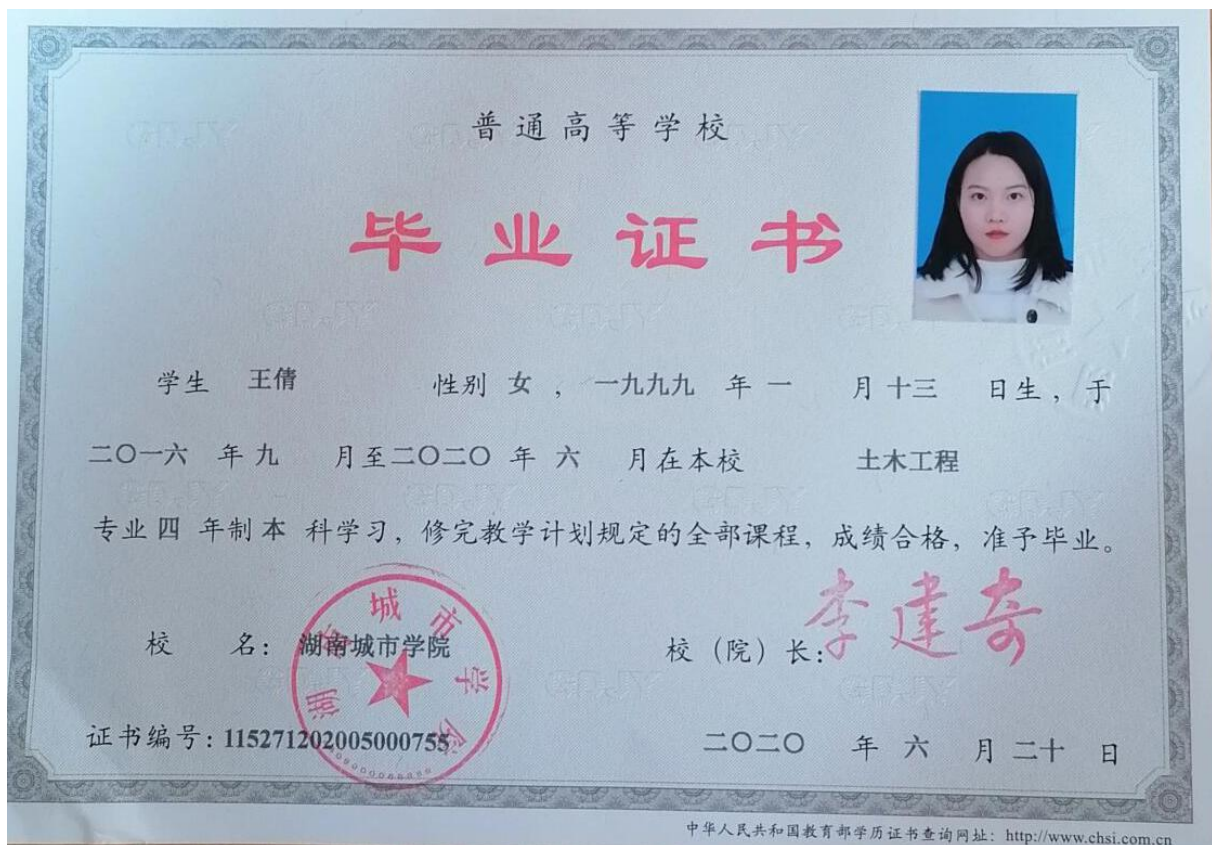 普通高等学校
毕业证书
学生 王倩 性别 女 ，一九九九 年 一 月 十三 日生，于
二〇一六 年 九 月至二〇二〇 年 六 月在本校 土木工程
专业 四 年制 本 科学习，修完教学计划规定的全部课程，成绩合格，准予毕业。
校 名：湖南城市学院
湖南城市学院
校（院）长：李建奇
证书编号：115271202005000755
二〇二〇 年 六 月 二十 日
中华人民共和国教育部学历证书查询网址：http://www.chsi.com.cn